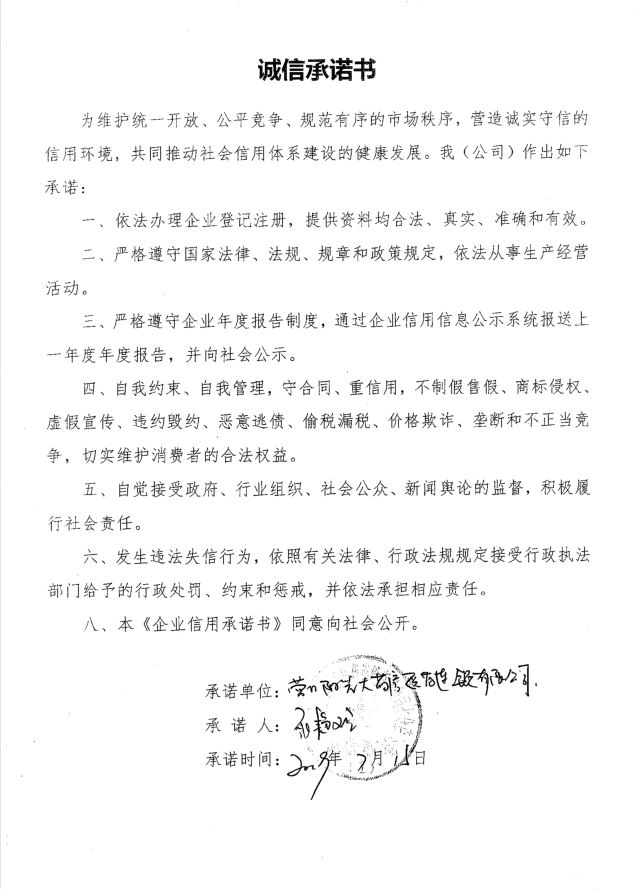 诚信承诺书
为维护统一开放、公平竞争、规范有序的市场秩序，营造诚实守信的
信用环境，共同推动社会信用体系建设的健康发展。我（公司）作出如下
承诺：
一、依法办理企业登记注册，提供资料均合法、真实、准确和有效。
二、严格遵守国家法律、法规、规章和政策规定，依法从事生产经营
活动。
三、严格遵守企业年度报告制度，通过企业信用信息公示系统报送上
一年度年度报告，并向社会公示。
四、自我约束、自我管理，守合同、重信用，不制假售假、商标侵权、
虚假宣传、违约毁约、恶意逃债、偷税漏税、价格欺诈、垄断和不正当竞
争，切实维护消费者的合法权益。
五、自觉接受政府、行业组织、社会公众、新闻舆论的监督，积极履
行社会责任。
六、发生违法失信行为，依照有关法律、行政法规规定接受行政执法
部门给予的行政处罚、约束和惩戒，并依法承担相应责任。
八、本《企业信用承诺书》同意向社会公开。
承诺单位：营口阳光大药房医药连锁有限公司
承 诺 人：
承诺时间：2019年 月15日